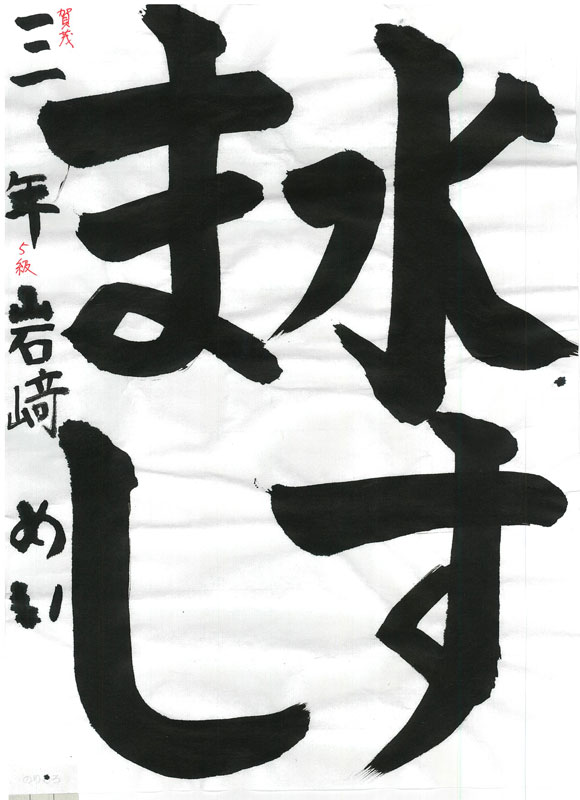 水す
まし
三年 岩﨑 めい
賀茂
5級